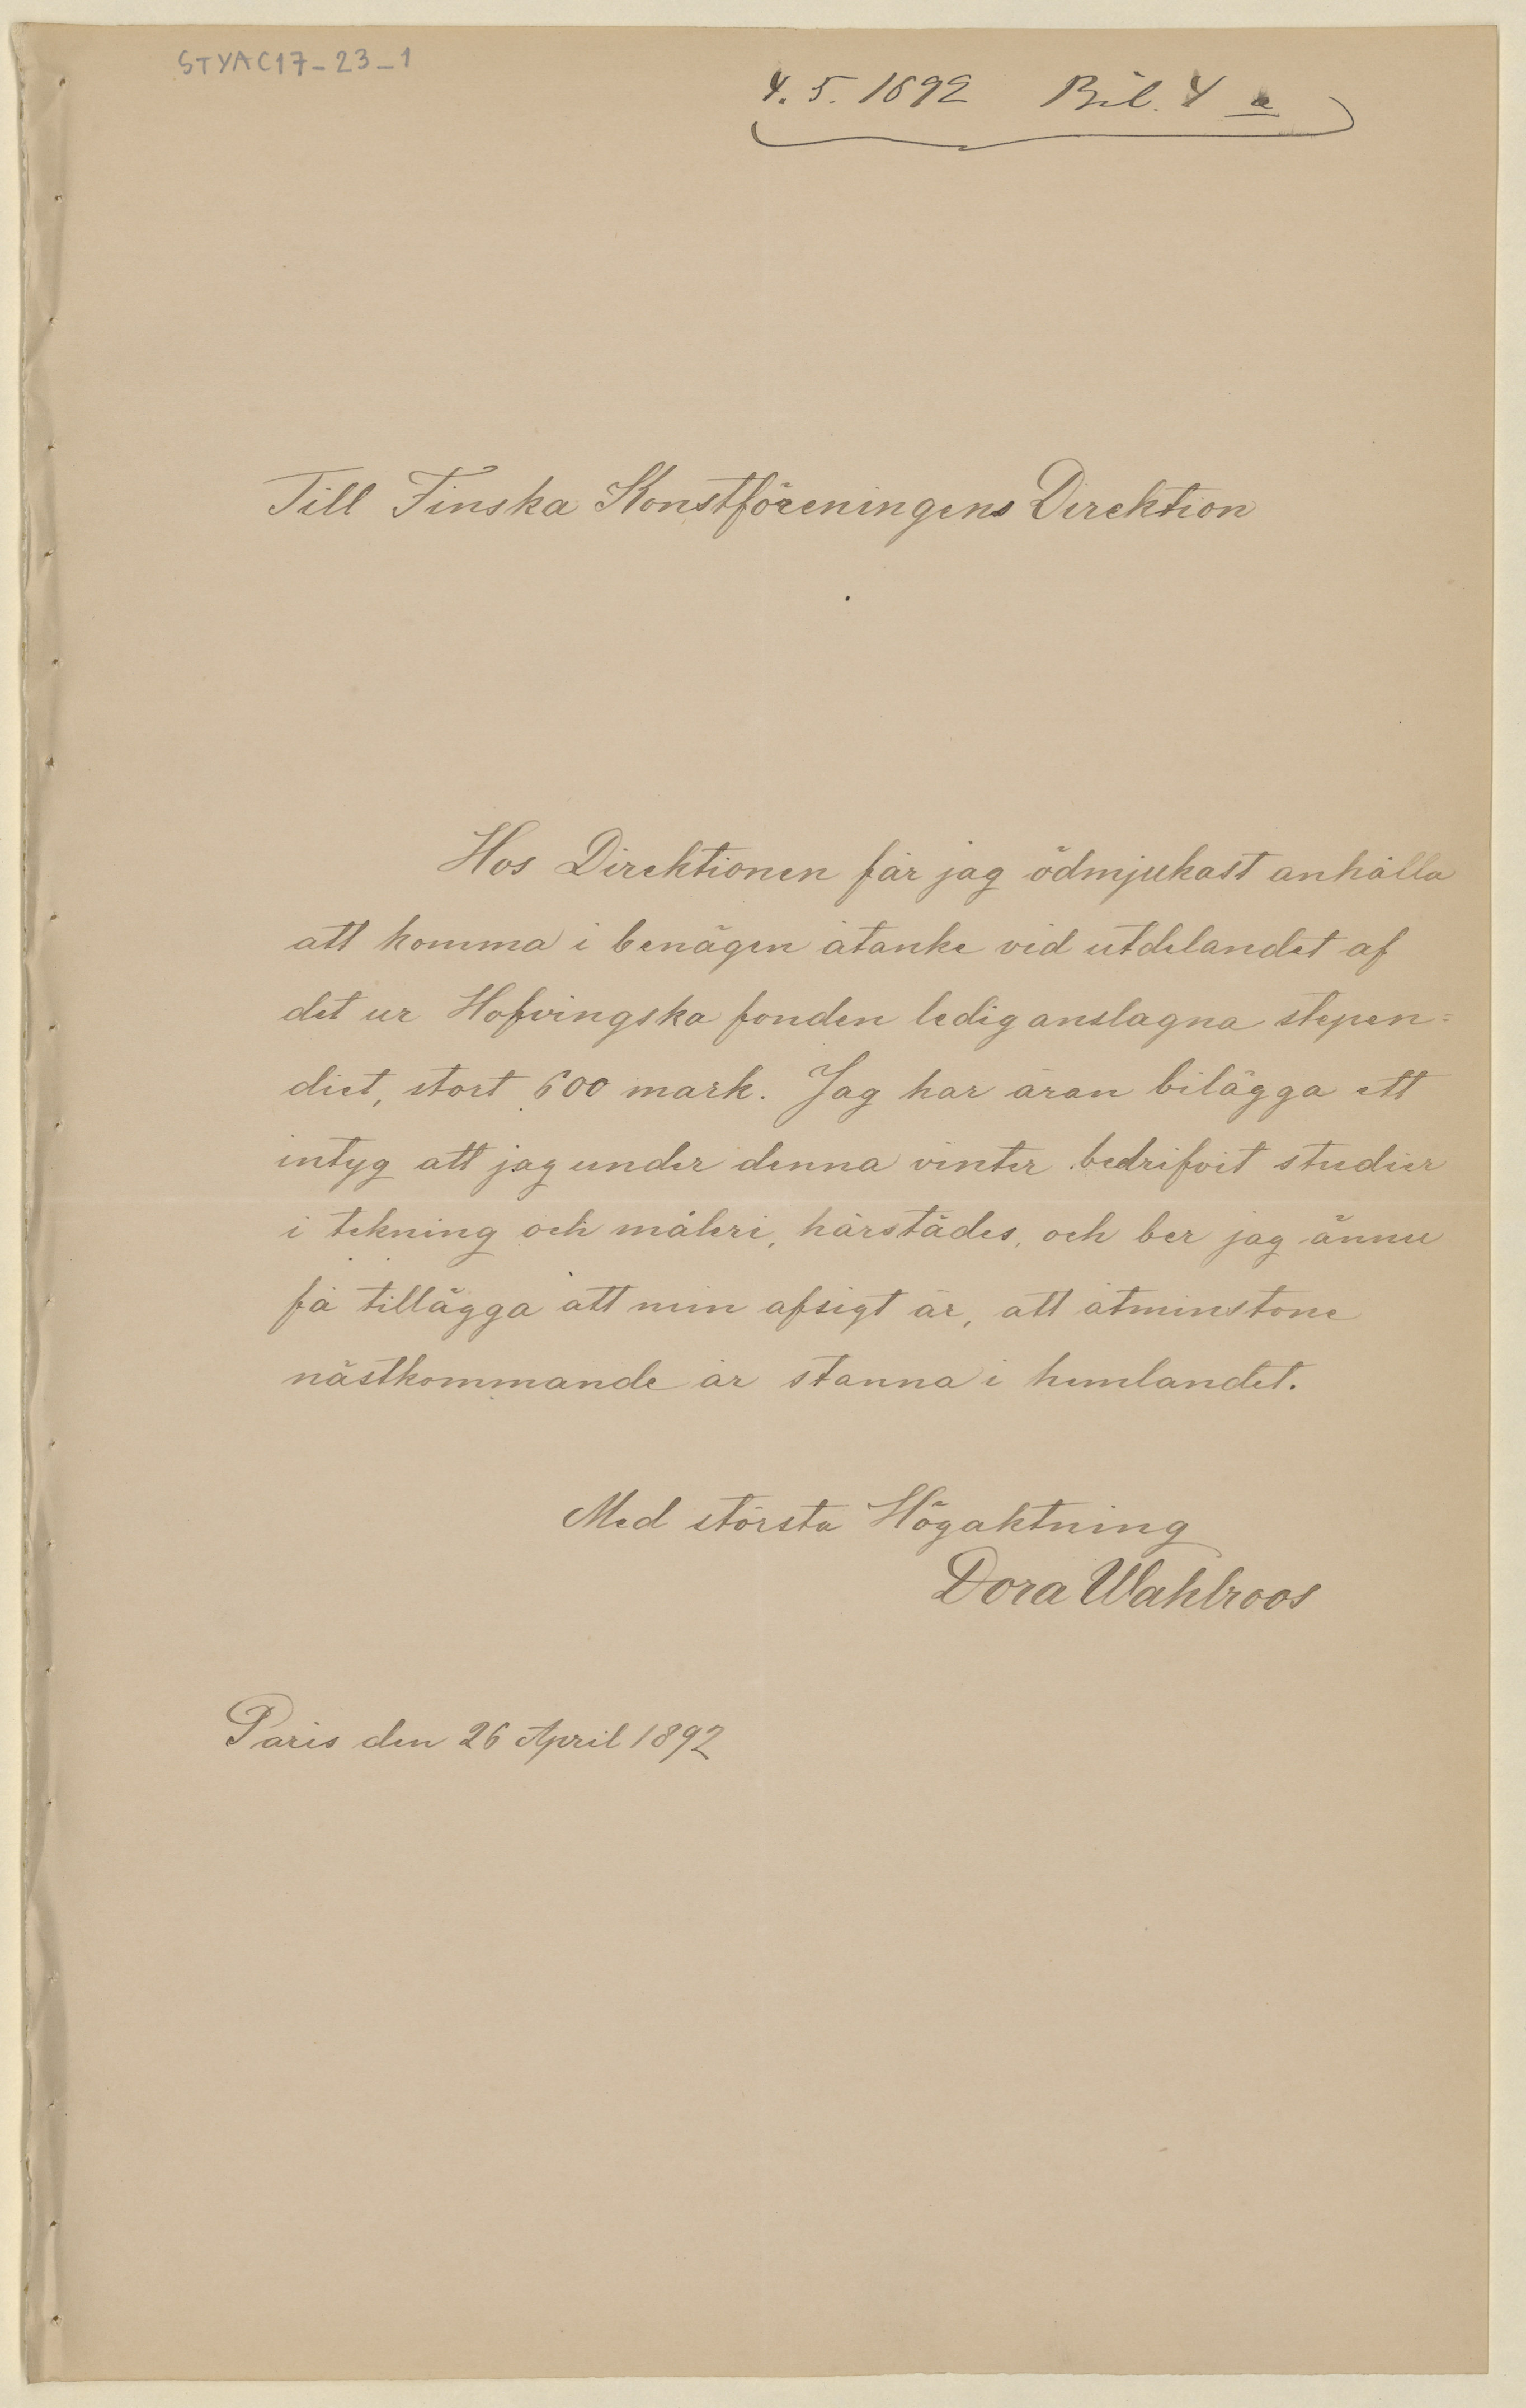 STYAC17-23-1
4. 5. 1892 Bil. 4 a
Till Finska Konstföreningens Direktion
Hos Direktionen får jag ödmjukast anhålla
att komma i benägen åtanke vid utdelandet af
det ur Hofvingska fonden lediganslagna stepen=
diet, stort 600 mark. Jag har äran bilägga ett
intyg att jag under denna vinter bedrifvit studier
i tekning och måleri, härstädes, och ber jag ännu
få tillägga att min afsigt är, att åtminstone
nästkommande år stanna i hemlandet.
Med största Högaktning
Dora Wahlroos
Paris den 26 April 1892